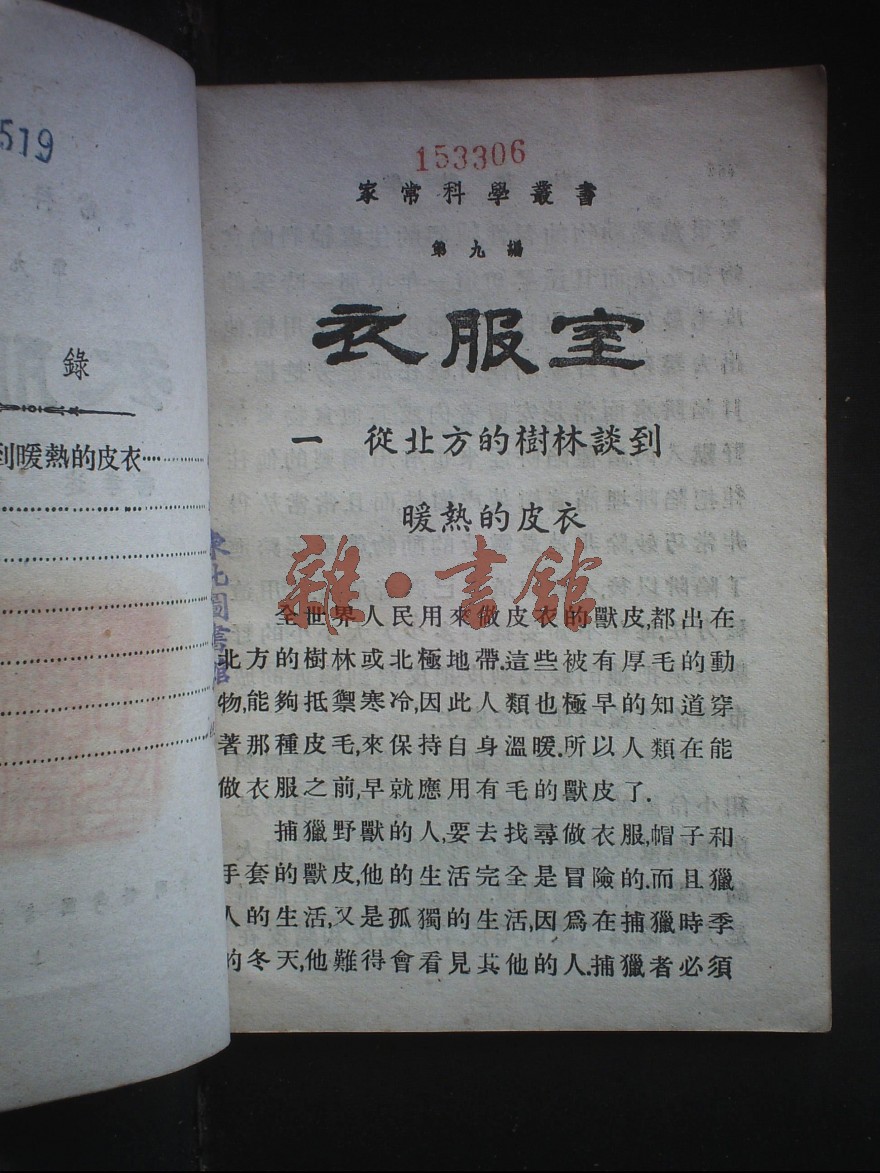 519
錄
到暖熱的皮衣
153306
家常科學叢書
第九編
衣服室
一 從北方的樹林談到
暖熱的皮衣
雜·書館
東北圖書館
全世界人民用來做皮衣的獸皮,都出在
北方的樹林或北極地帶.這些被有厚毛的動
物,能夠抵禦寒冷,因此人類也極早的知道穿
著那種皮毛,來保持自身溫暖.所以人類在能
做衣服之前,早就應用有毛的獸皮了.
捕獵野獸的人,要去找尋做衣服,帽子和
手套的獸皮,他的生活完全是冒險的.而且獵
人的生活,又是孤獨的生活,因爲在捕獵時季
的冬天,他難得會看見其他的人.捕獵者必須